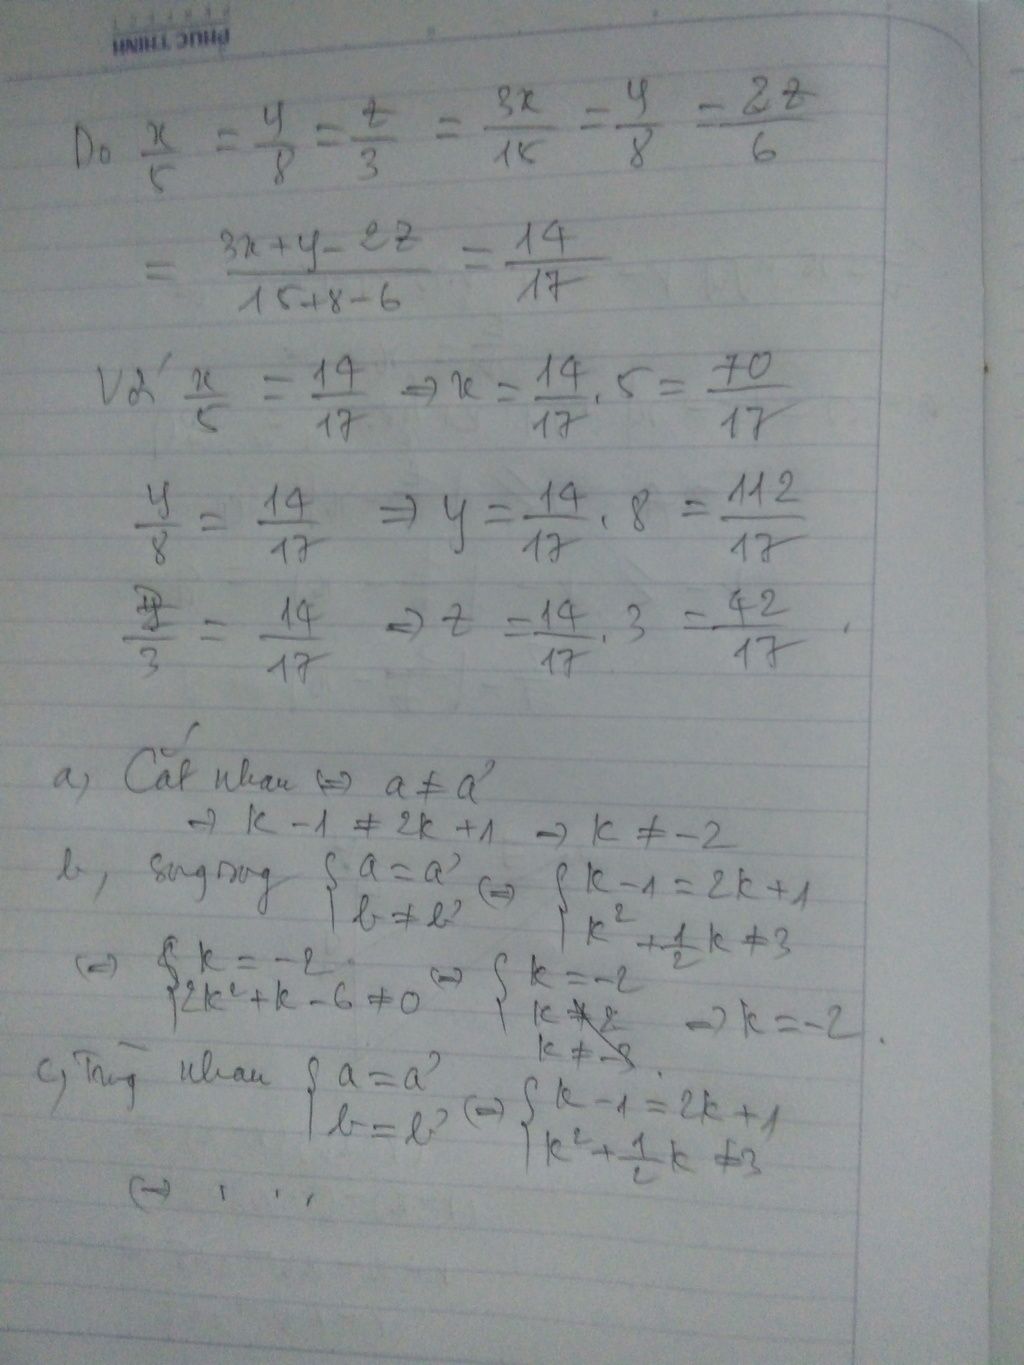 PHUC THINH
Do x/5 = y/8 = z/3 = 3x/15 = y/8 = 2z/6
= (3x+y-2z)/(15+8-6) = 14/17
Với x/5 = 14/17 => x = 14/17 . 5 = 70/17
y/8 = 14/17 => y = 14/17 . 8 = 112/17
/3 = 14/17 => z = 14/17 . 3 = 42/17 .
a, Cắt nhau <=> a ≠ a'
=> k - 1 ≠ 2k + 1 => k ≠ -2
b, song song { a = a' ; b ≠ b' <=> { k - 1 = 2k + 1 ; k² + 1/2 k ≠ 3
<=> { k = -2 ; 2k² + k - 6 ≠ 0 <=> { k = -2 => k = -2 .
c, Trùng nhau { a = a' ; b = b' <=> { k - 1 = 2k + 1 ; k² + 1/2 k ≠ 3
<=> . . .